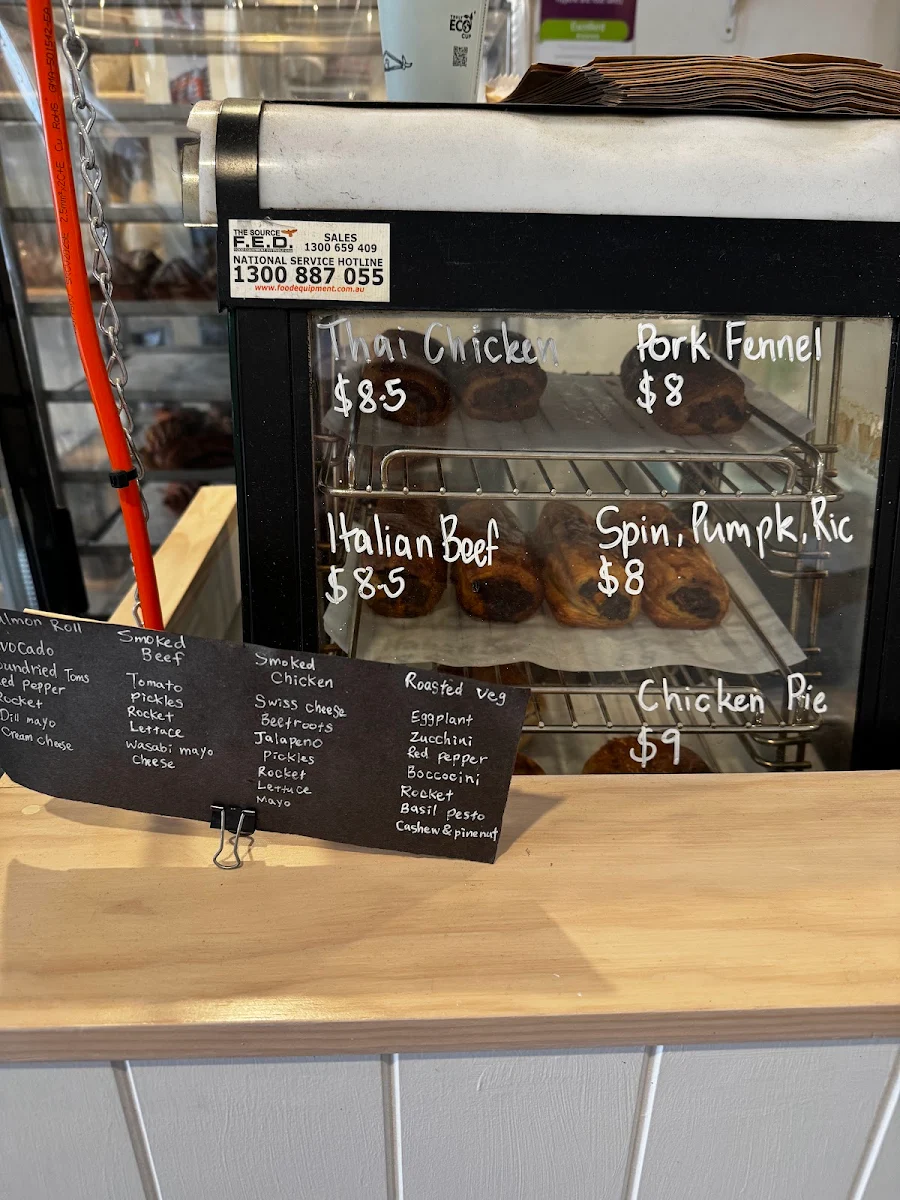 TRULY
ECO
CUP
Excellent
2.5mm²2C+E Cu RoHS GMA-501542-EA
THE SOURCE
F.E.D.
SALES
1300 659 409
NATIONAL SERVICE HOTLINE
1300 887 055
www.foodequipment.com.au
Thai Chicken
$8.5
Pork Fennel
$8
Italian Beef
$8.5
Spin, Pumpk, Ric
$8
Chicken Pie
$9
almon Roll
vocado
oundried Toms
ed pepper
ocket
Dill mayo
Cream cheese
Smoked
Beef
Tomato
Pickles
Rocket
Lettuce
wasabi mayo
cheese
Smoked
Chicken
Swiss cheese
Beetroots
Jalapeno
Pickles
Rocket
Lettuce
Mayo
Roasted veg
Eggplant
Zucchini
Red pepper
Boccocini
Rocket
Basil pesto
Cashew & pinenut